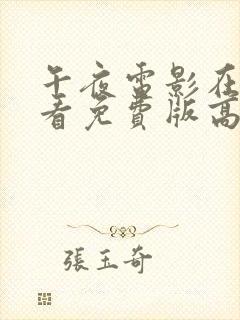 午夜雷影在
看免費版高
張玉奇